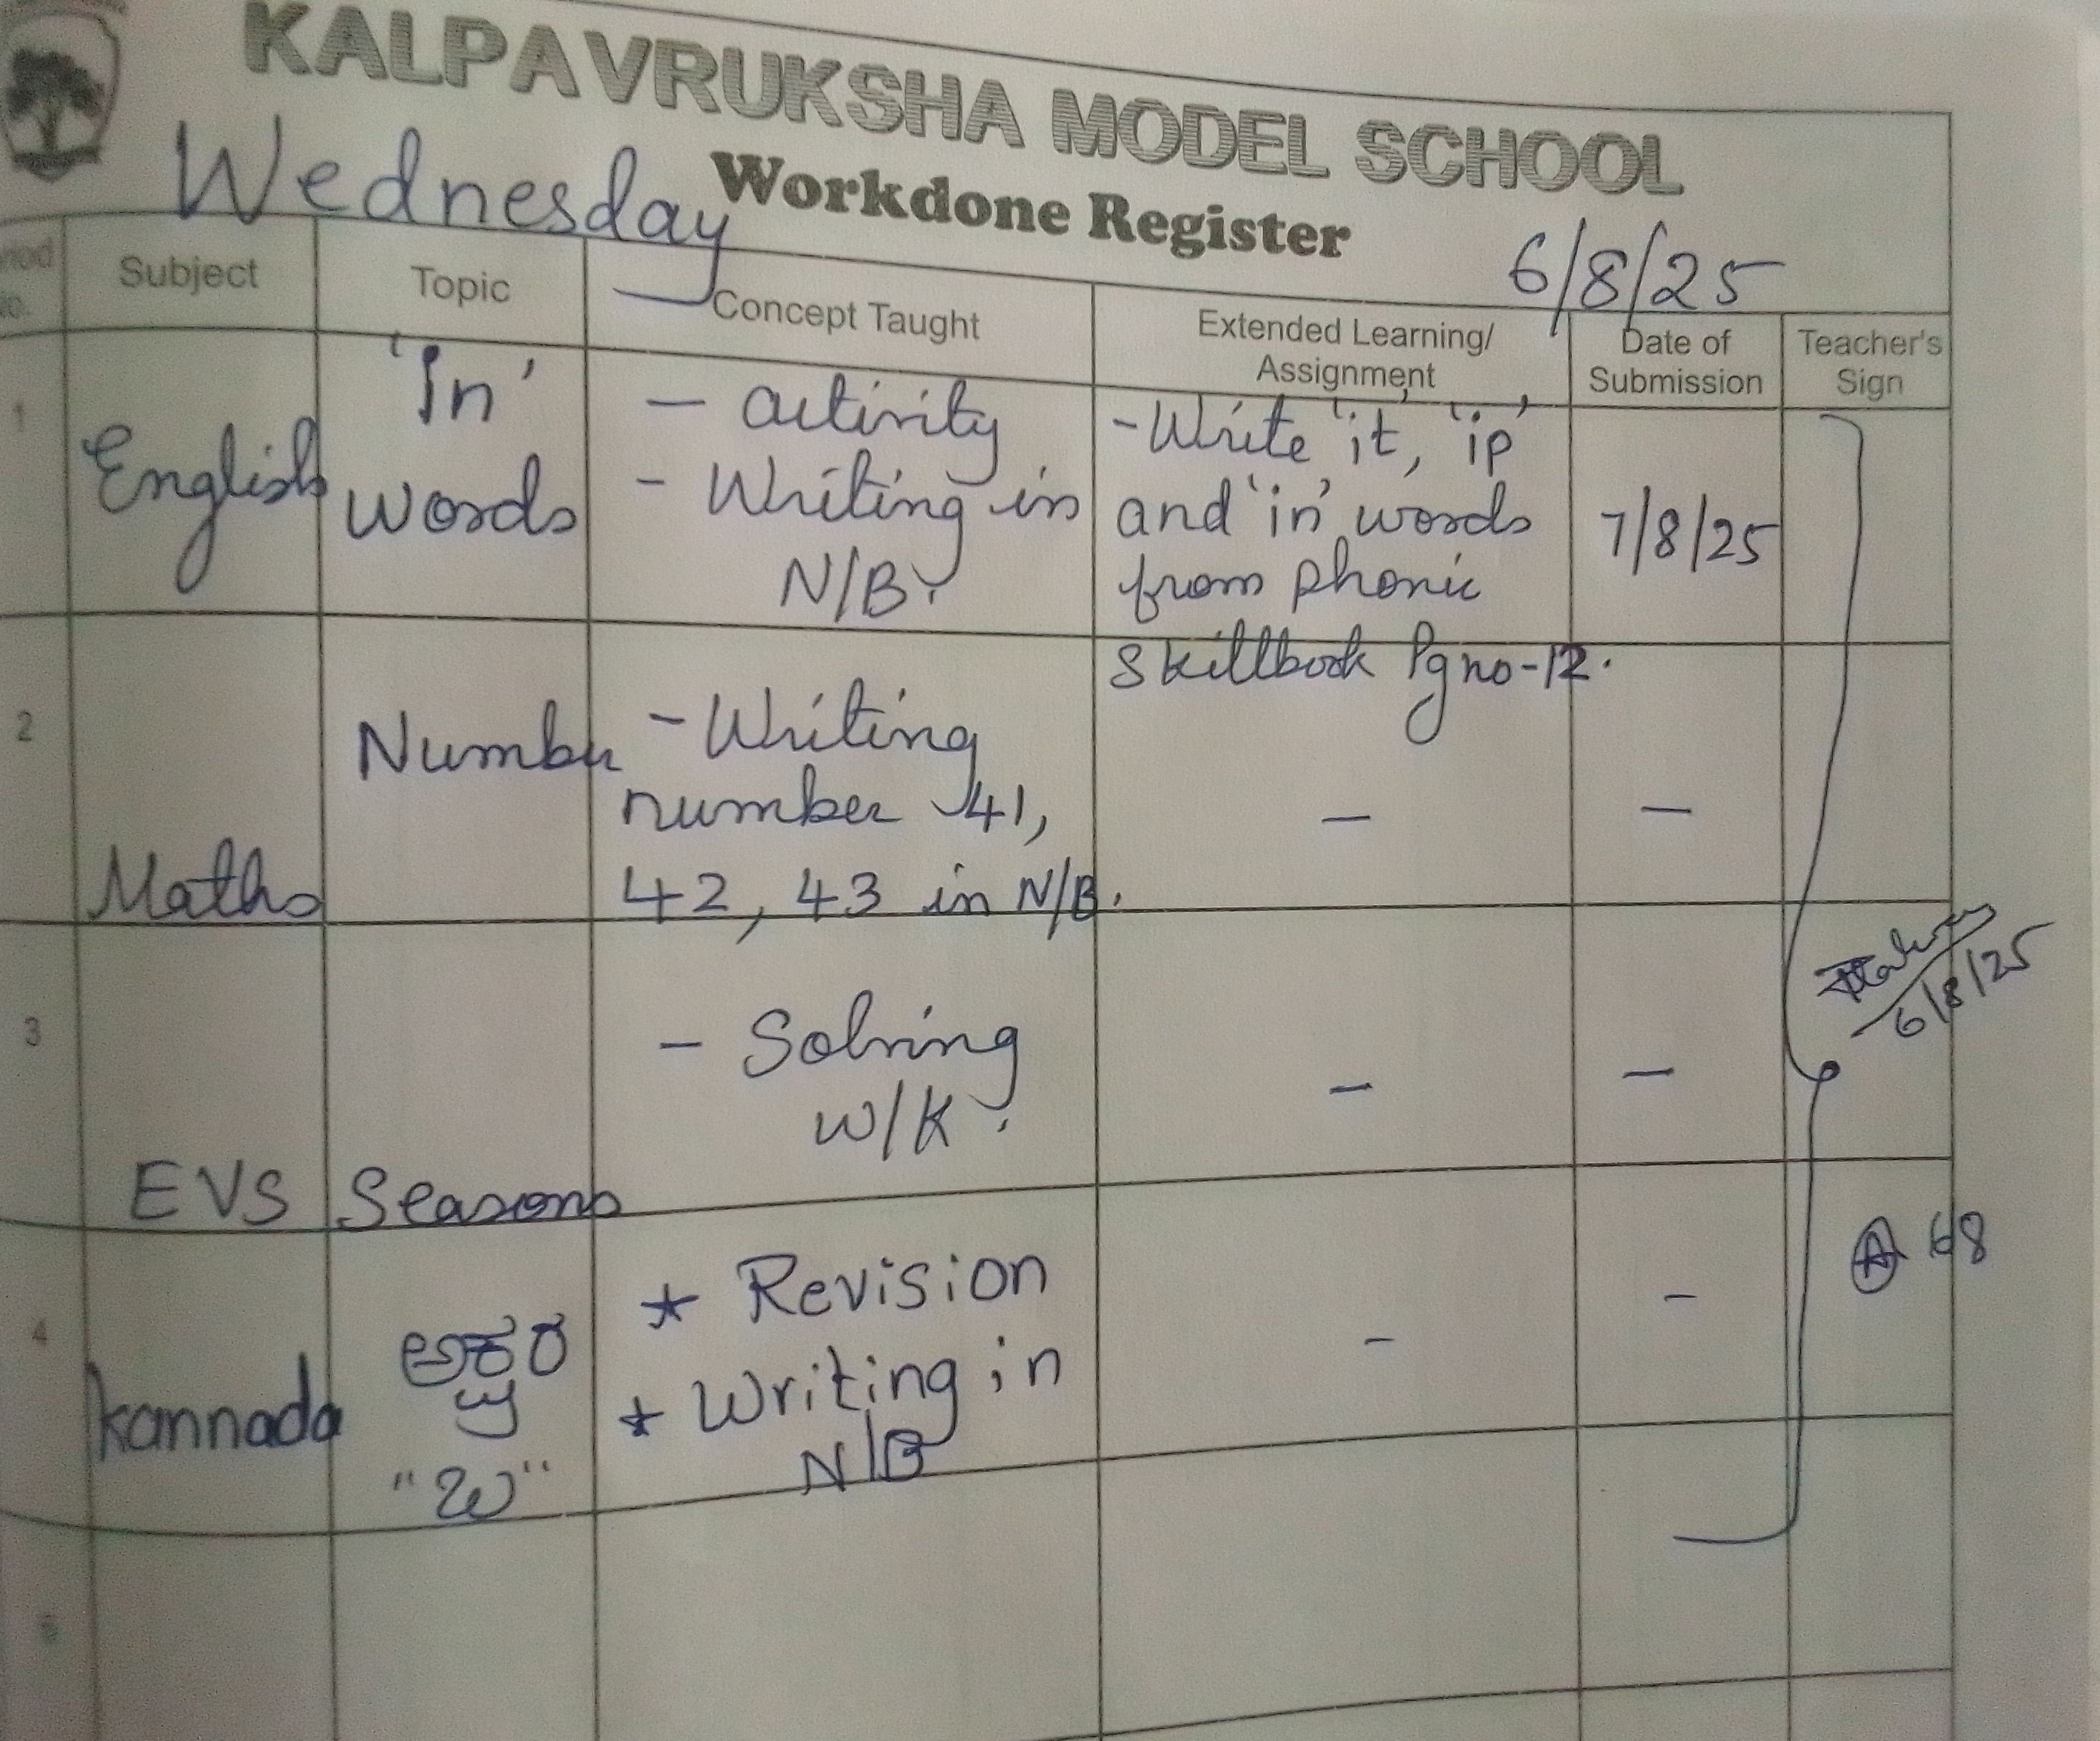 KALPAVRUKSHA MODEL SCHOOL
Wednesday
Workdone Register
6/8/25
Subject
Topic
Concept Taught
Extended Learning/
Assignment
Date of
Submission
Teacher's
Sign
1
English
'In'
words
- activity
- Writing in
N/B.
- Write 'it', 'ip'
and 'in' words
from phonic
skillbook Pg no-12.
7/8/25
2
Maths
Number
- Writing
number 41,
42, 43 in N/B.
-
-
3
EVS
Seasons
- Solving
W/K.
-
-
6/8/25
4
kannada
ಅಕ್ಷರ
"ಖ"
* Revision
* Writing in
N/B
-
-
5